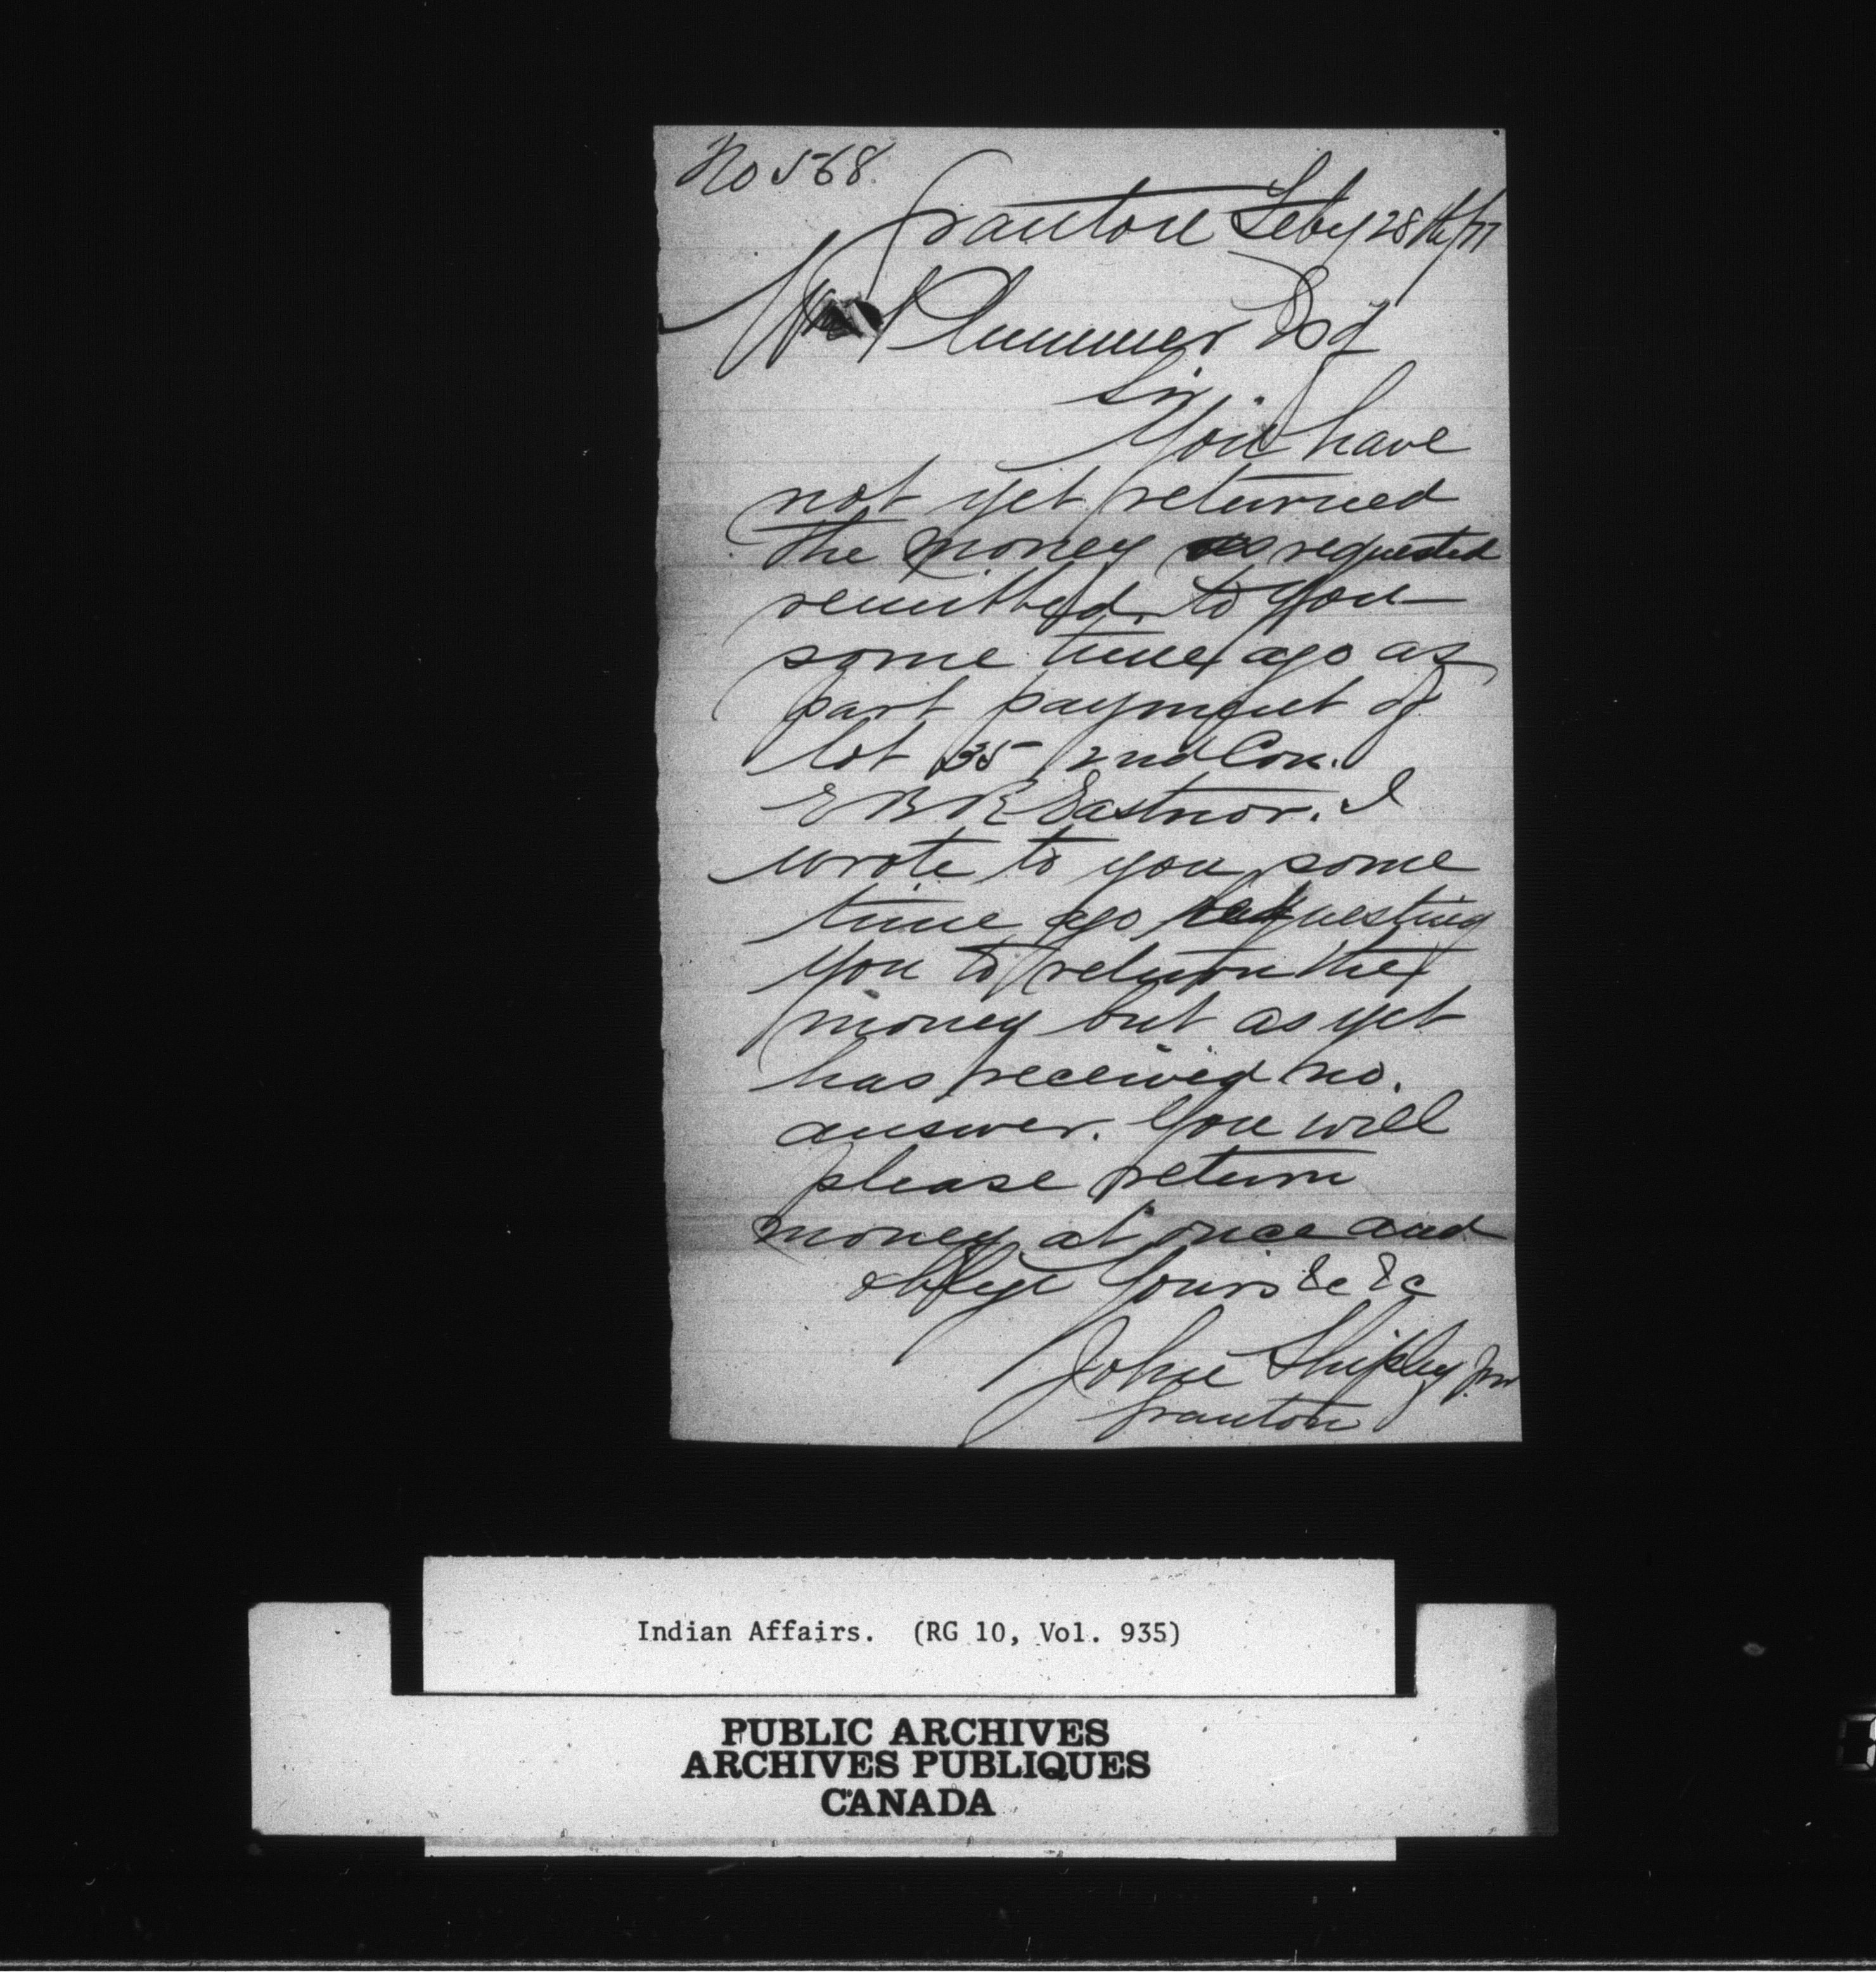 No 568.
Granton Feby 28th/77
Wm Plummer Esq
Sir.
You have
not yet returned
the money as requested
remitted to you
some time ago as
part payment of
lot 35 2nd Con.
E B R Eastnor. I
wrote to you some
time ago requesting
you to return the
money but as yet
has received no.
answer. You will
please return
money at once and
oblige Yours &c &c
John Shipley Jnr
Granton
Indian Affairs. (RG 10, Vol. 935)
PUBLIC ARCHIVES
ARCHIVES PUBLIQUES
CANADA